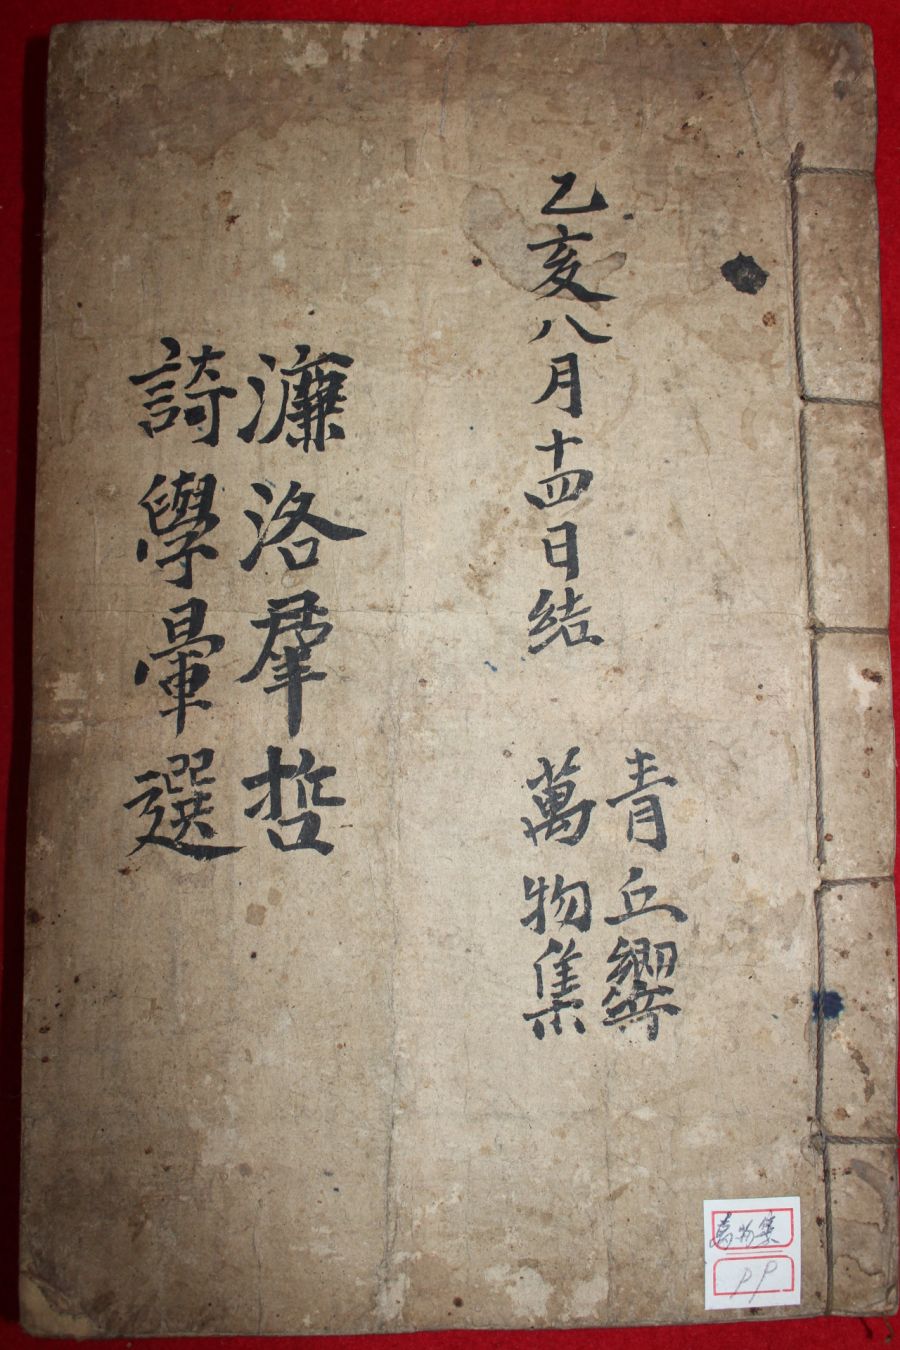 青丘響
乙亥八月十四日結
萬物集
濂洛羣哲
詩學暈選
萬物集
PP